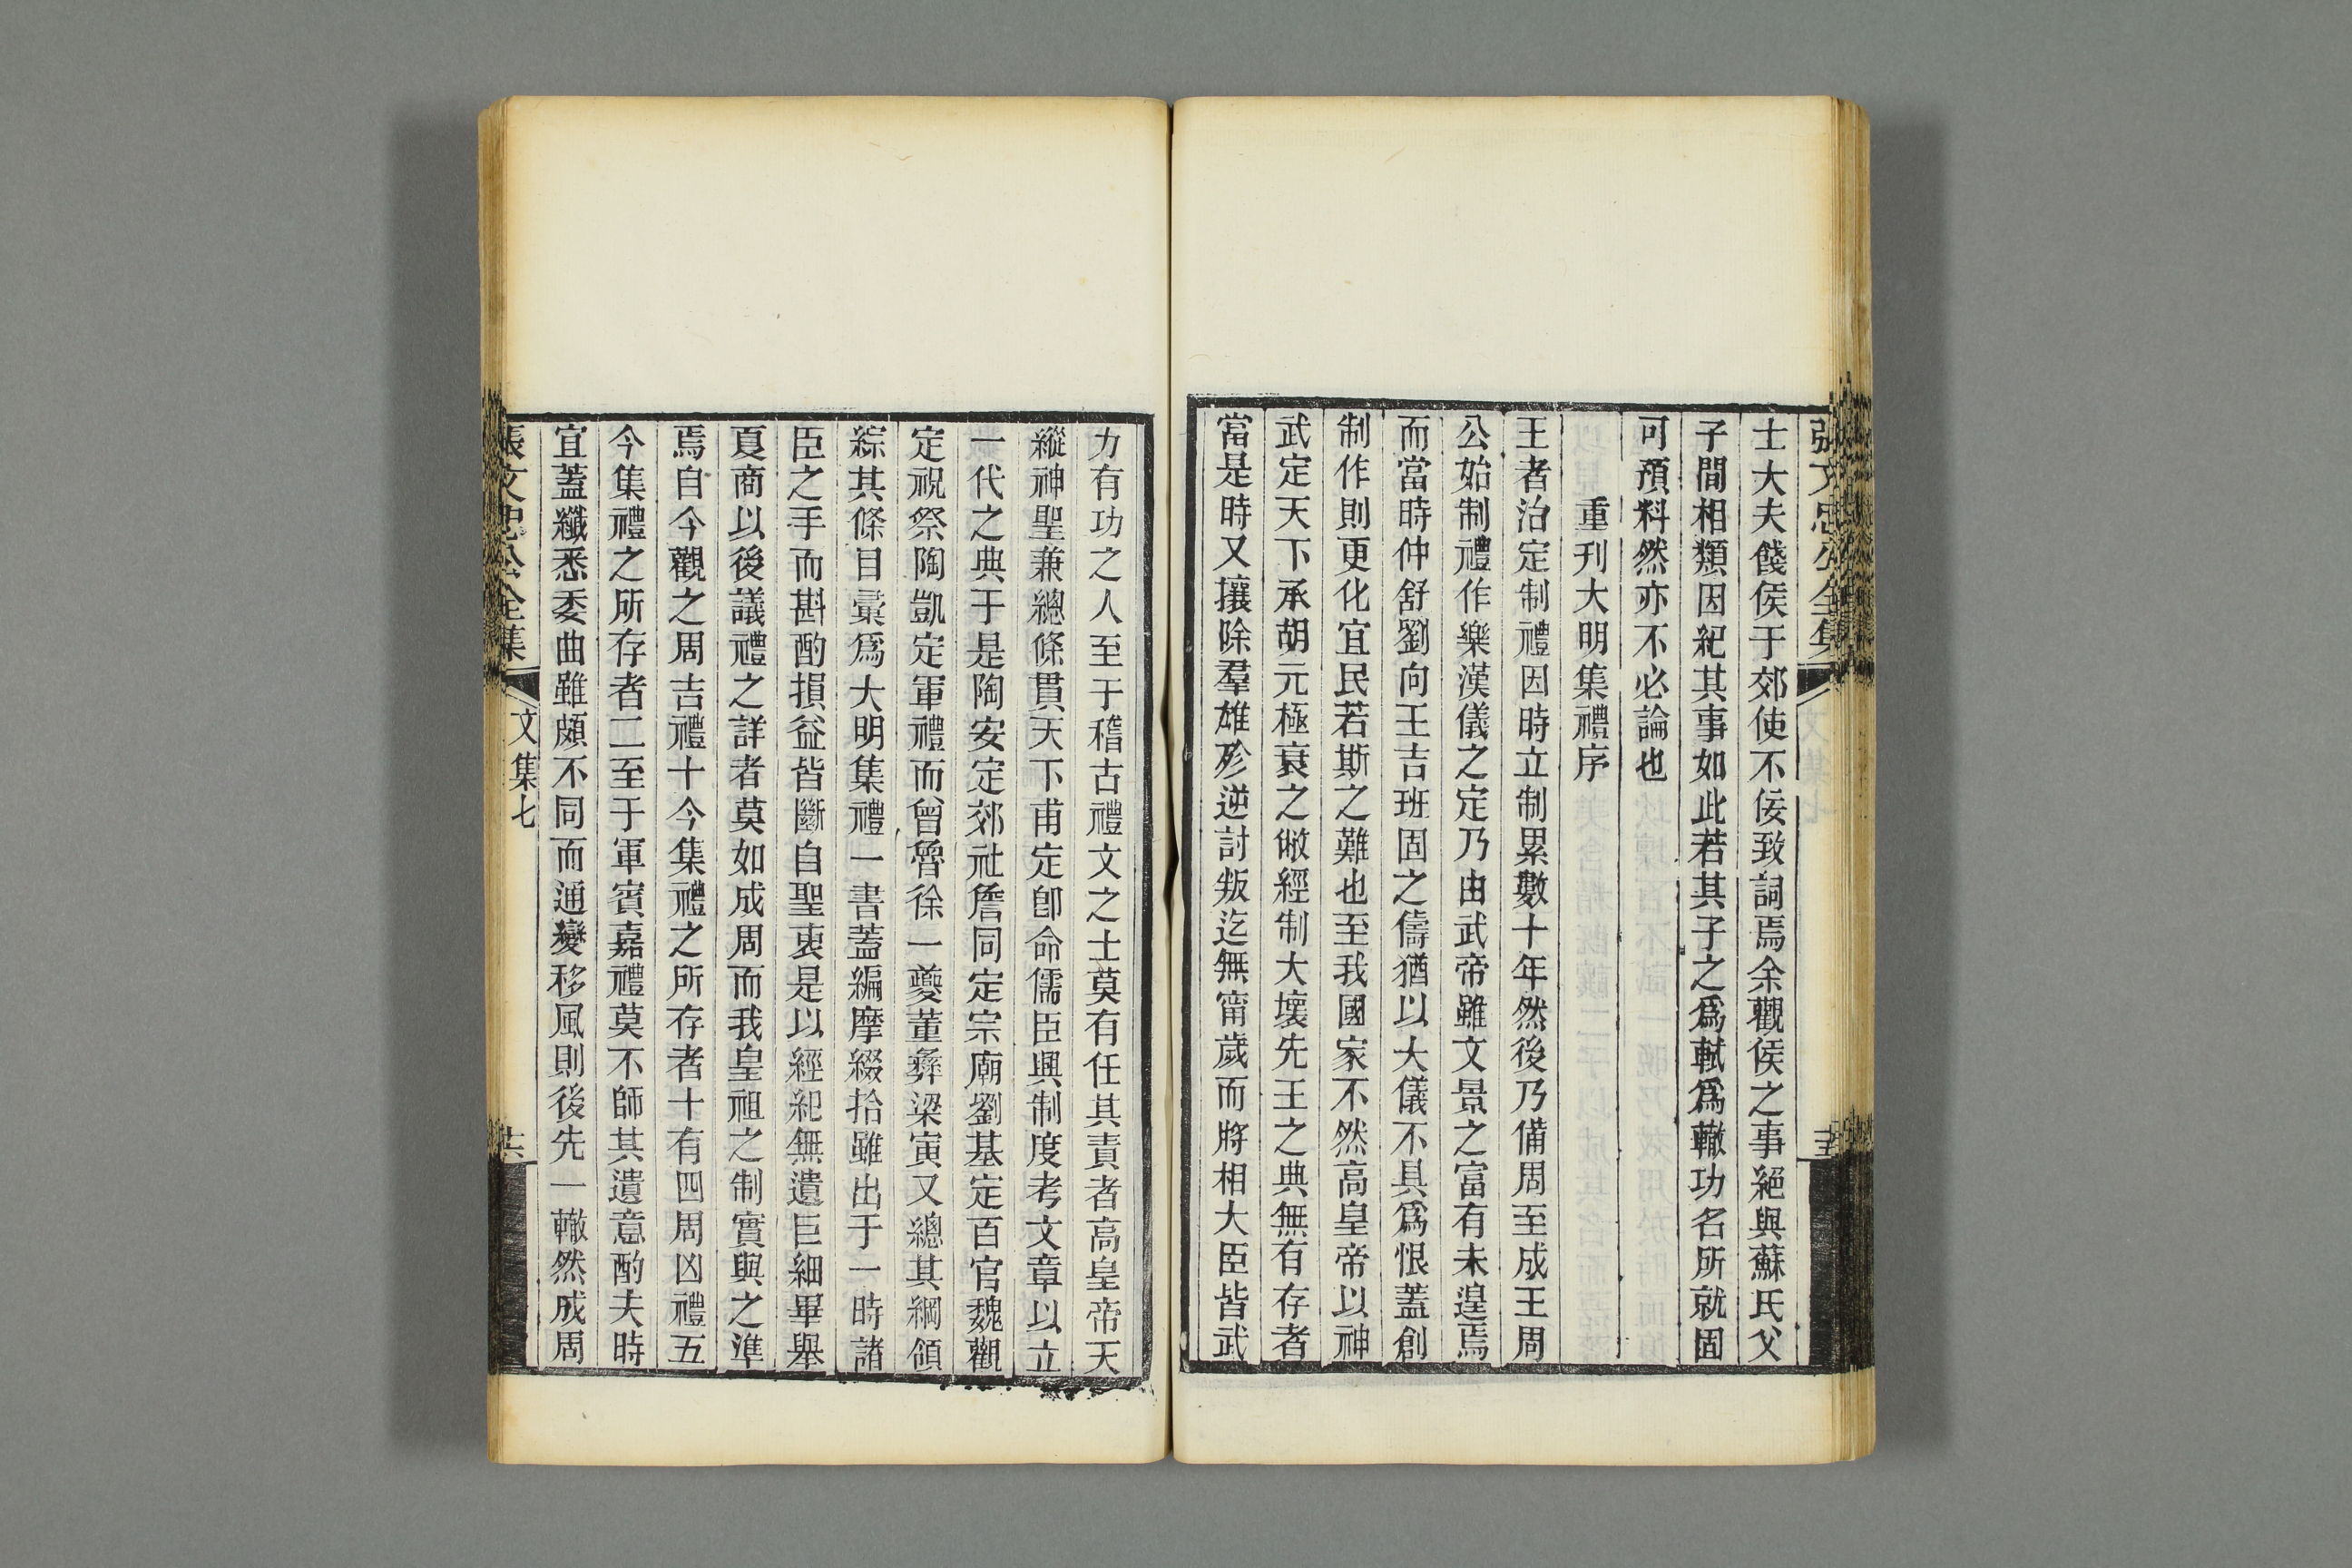 張文忠公全集
士大夫餞侯于郊使不佞致詞焉余觀侯之事絕與蘇氏父
子間相類因紀其事如此若其子之爲軾爲轍功名所就固
可預料然亦不必論也
重刊大明集禮序
王者治定制禮因時立制累數十年然後乃備周至成王周
公始制禮作樂漢儀之定乃由武帝雖文景之富有未遑焉
而當時仲舒劉向王吉班固之儔猶以大儀不具爲恨蓋創
制作則更化宜民若斯之難也至我國家不然高皇帝以神
武定天下承胡元極衰之敝經制大壞先王之典無有存者
當是時又攘除羣雄殄逆討叛迄無甯歲而將相大臣皆武
力有功之人至于稽古禮文之士莫有任其責者高皇帝天
縱神聖兼總條貫天下甫定卽命儒臣興制度考文章以立
一代之典于是陶安定郊社詹同定宗廟劉基定百官魏觀
定祝祭陶凱定軍禮而曾魯徐一夔董彝梁寅又總其綱領
綜其條目彙爲大明集禮一書蓋編摩綴拾雖出于一時諸
臣之手而斟酌損益皆斷自聖衷是以經紀無遺巨細畢舉
夏商以後議禮之詳者莫如成周而我皇祖之制實與之準
焉自今觀之周吉禮十今集禮之所存者十有四周凶禮五
今集禮之所存者二至于軍賓嘉禮莫不師其遺意酌夫時
宜蓋纖悉委曲雖頗不同而通變移風則後先一轍然成周
張文忠公全集
文集七